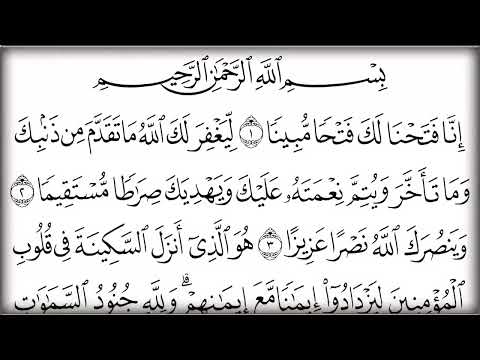 بِسْمِ ٱللَّهِ ٱلرَّحْمَٰنِ ٱلرَّحِيمِ
إِنَّا فَتَحْنَا لَكَ فَتْحًا مُّبِينًا ١ لِّيَغْفِرَ لَكَ ٱللَّهُ مَا تَقَدَّمَ مِن ذَنۢبِكَ
وَمَا تَأَخَّرَ وَيُتِمَّ نِعْمَتَهُۥ عَلَيْكَ وَيَهْدِيَكَ صِرَٰطًا مُّسْتَقِيمًا ٢
وَيَنصُرَكَ ٱللَّهُ نَصْرًا عَزِيزًا ٣ هُوَ ٱلَّذِىٓ أَنزَلَ ٱلسَّكِينَةَ فِى قُلُوبِ
ٱلْمُؤْمِنِينَ لِيَزْدَادُوٓا۟ إِيمَٰنًا مَّعَ إِيمَٰنِهِمْ ۗ وَلِلَّهِ جُنُودُ ٱلسَّمَٰوَٰتِ